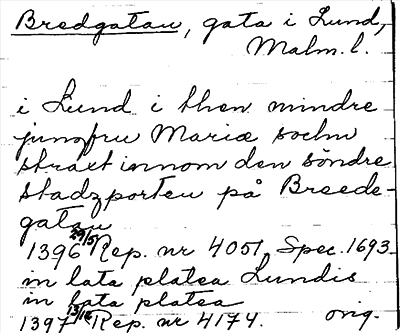 Bredgatan, gata i Lund,
Malm. l.
i Lund i then mindre
jungfru Mariæ sochn
straxt innom den söndre
stadzporten på Breede-
gatan
1396 29/5 Rep. nr 4051, Spec. 1693.
in lata platea Lundis
in lata platea
1397 13/12 Rep. nr 4174. orig.